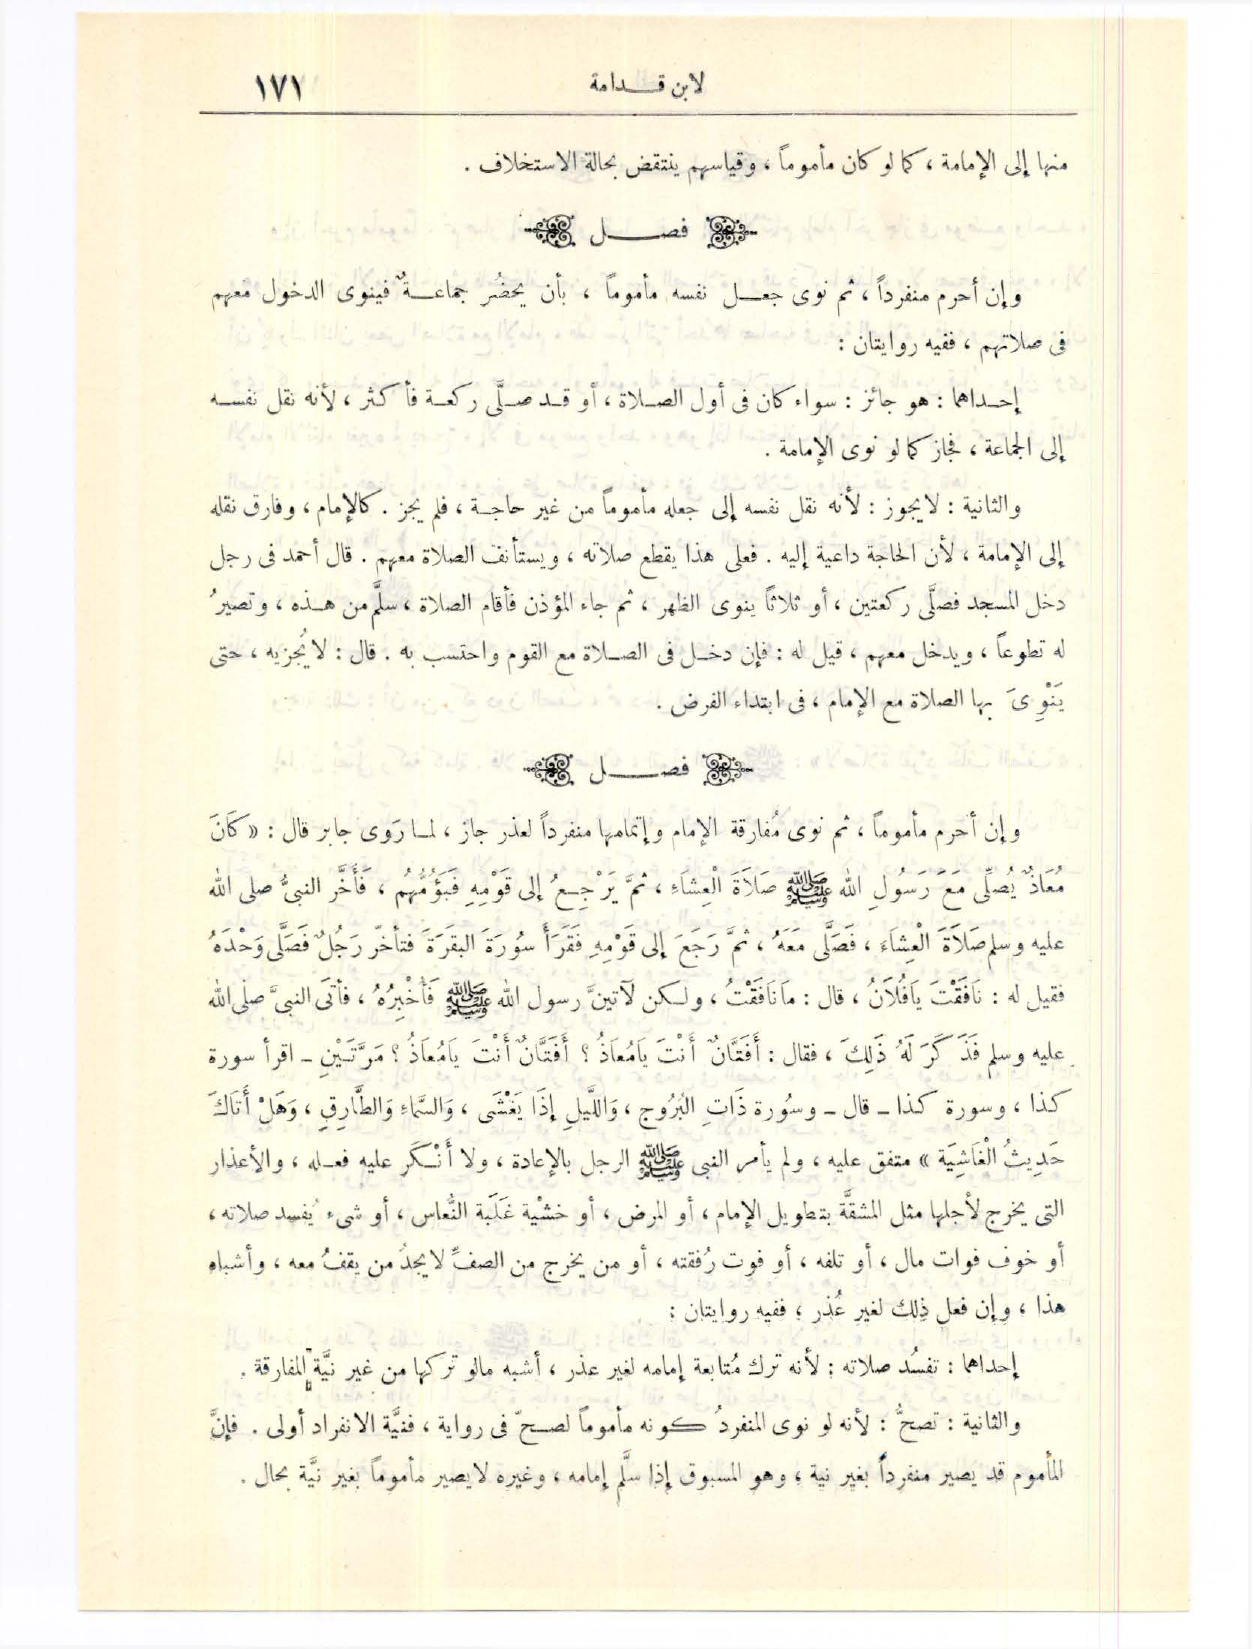 لابن قدامة ١٧١
منها إلى الإمامة ، كما لو كان مأموماً ، وقياسهم ينتقض بحالة الاستخلاف .
فصل
وإن أحرم منفرداً ، ثم نوى جعل نفسه مأموماً ، بأن يحضُر جماعةٌ فينوى الدخول معهم
فى صلاتهم ، ففيه روايتان :
إحداهما : هو جائز : سواء كان فى أول الصلاة ، أو قد صلَّى ركعة فأكثر ، لأنه نقل نفسه
إلى الجماعة ، فجاز كما لو نوى الإمامة .
والثانية : لايجوز : لأنه نقل نفسه إلى جعله مأموماً من غير حاجة ، فلم يجز . كالإمام ، وفارق نقله
إلى الإمامة ، لأن الحاجة داعية إليه . فعلى هذا يقطع صلاته ، ويستأنف الصلاة معهم . قال أحمد فى رجل
دخل المسجد فصلَّى ركعتين ، أو ثلاثاً ينوى الظهر ، ثم جاء المؤذن فأقام الصلاة ، سلَّم من هذه ، وتصيرُ
له تطوعاً ، ويدخل معهم ، قيل له : فإن دخل فى الصلاة مع القوم واحتسب به . قال : لايُجزيه ، حتى
يَنْوِىَ بها الصلاة مع الإمام ، فى ابتداء الفرض .
فصل
وإن أحرم مأموماً ، ثم نوى مُفارقة الإمام وإتمامها منفرداً لعذر جاز ، لما رَوى جابر قال : « كَانَ
مُعَاذٌ يُصلِّى مَعَ رَسُولِ الله ﷺ صَلَاةَ الْعِشَاءِ ، ثمَّ يَرْجِعُ إلى قَوْمِهِ فَيَؤُمُّهُم ، فَأَخَّر النبىُّ صلى الله
عليه وسلم صَلَاةَ الْعِشَاءَ ، فَصَلَّى مَعَهُ ، ثمَّ رَجَعَ إلى قَوْمِهِ فَقَرَأَ سُورَةَ البقَرَةَ فتأخّر رَجُلٌ فَصَلَّى وَحْدَهُ
فقيل له : نَافَقْتَ يَافُلَانُ ، قال : مانَافَقْتُ ، ولكن لآتينَّ رسول الله ﷺ فَأُخْبِرُهُ ، فأتَى النبىَّ صلى الله
عليه وسلم فَذَكَرَ لَهُ ذَلِكَ ، فقال : أَفَتَّانٌ أَنْتَ يَامُعَاذُ ؟ أَفَتَّانٌ أَنْتَ يَامُعَاذُ ؟ مَرَّتَيْنِ ــ اقرأ سورة
كذا ، وسورة كذا ــ قال ــ وسُورة ذَاتِ البُرُوجِ ، وَاللَّيلِ إذَا يَغْشَى ، وَالسَّماءِ وَالطَّارِقِ ، وَهَلْ أَتَاكَ
حَدِيثُ الْغَاشِيَةِ » متفق عليه ، ولم يأمر النبى ﷺ الرجل بالإعادة ، ولا أَنْكَر عليه فعله ، والأعذار
التى يخرج لأجلها مثل المشقَّة بتطويل الإمام ، أو المرض ، أو خشْية غَلَبَة النُّعاس ، أو شىء يُفسد صلاته ،
أو خوف فوات مال ، أو تلفه ، أو فوت رُفقته ، أو من يخرج من الصفِّ لايجدُ من يقفُ معه ، وأشباه
هذا ، وإن فعل ذلك لغير عُذر ؛ ففيه روايتان :
إحداهما : تفسُد صلاته : لأنه ترك مُتابعة إمامه لغير عذر ، أشبه مالو تركها من غير نيَّة المفارقة .
والثانية : تصحُّ : لأنه لو نوى المنفردُ كونه مأموماً لصحّ فى رواية ، فنيَّة الانفراد أولى . فإنَّ
المأموم قد يصير منفرداً بغير نية ، وهو المسبوق إذا سلَّم إمامه ، وغيره لايصير مأموماً بغير نيَّة بحال .